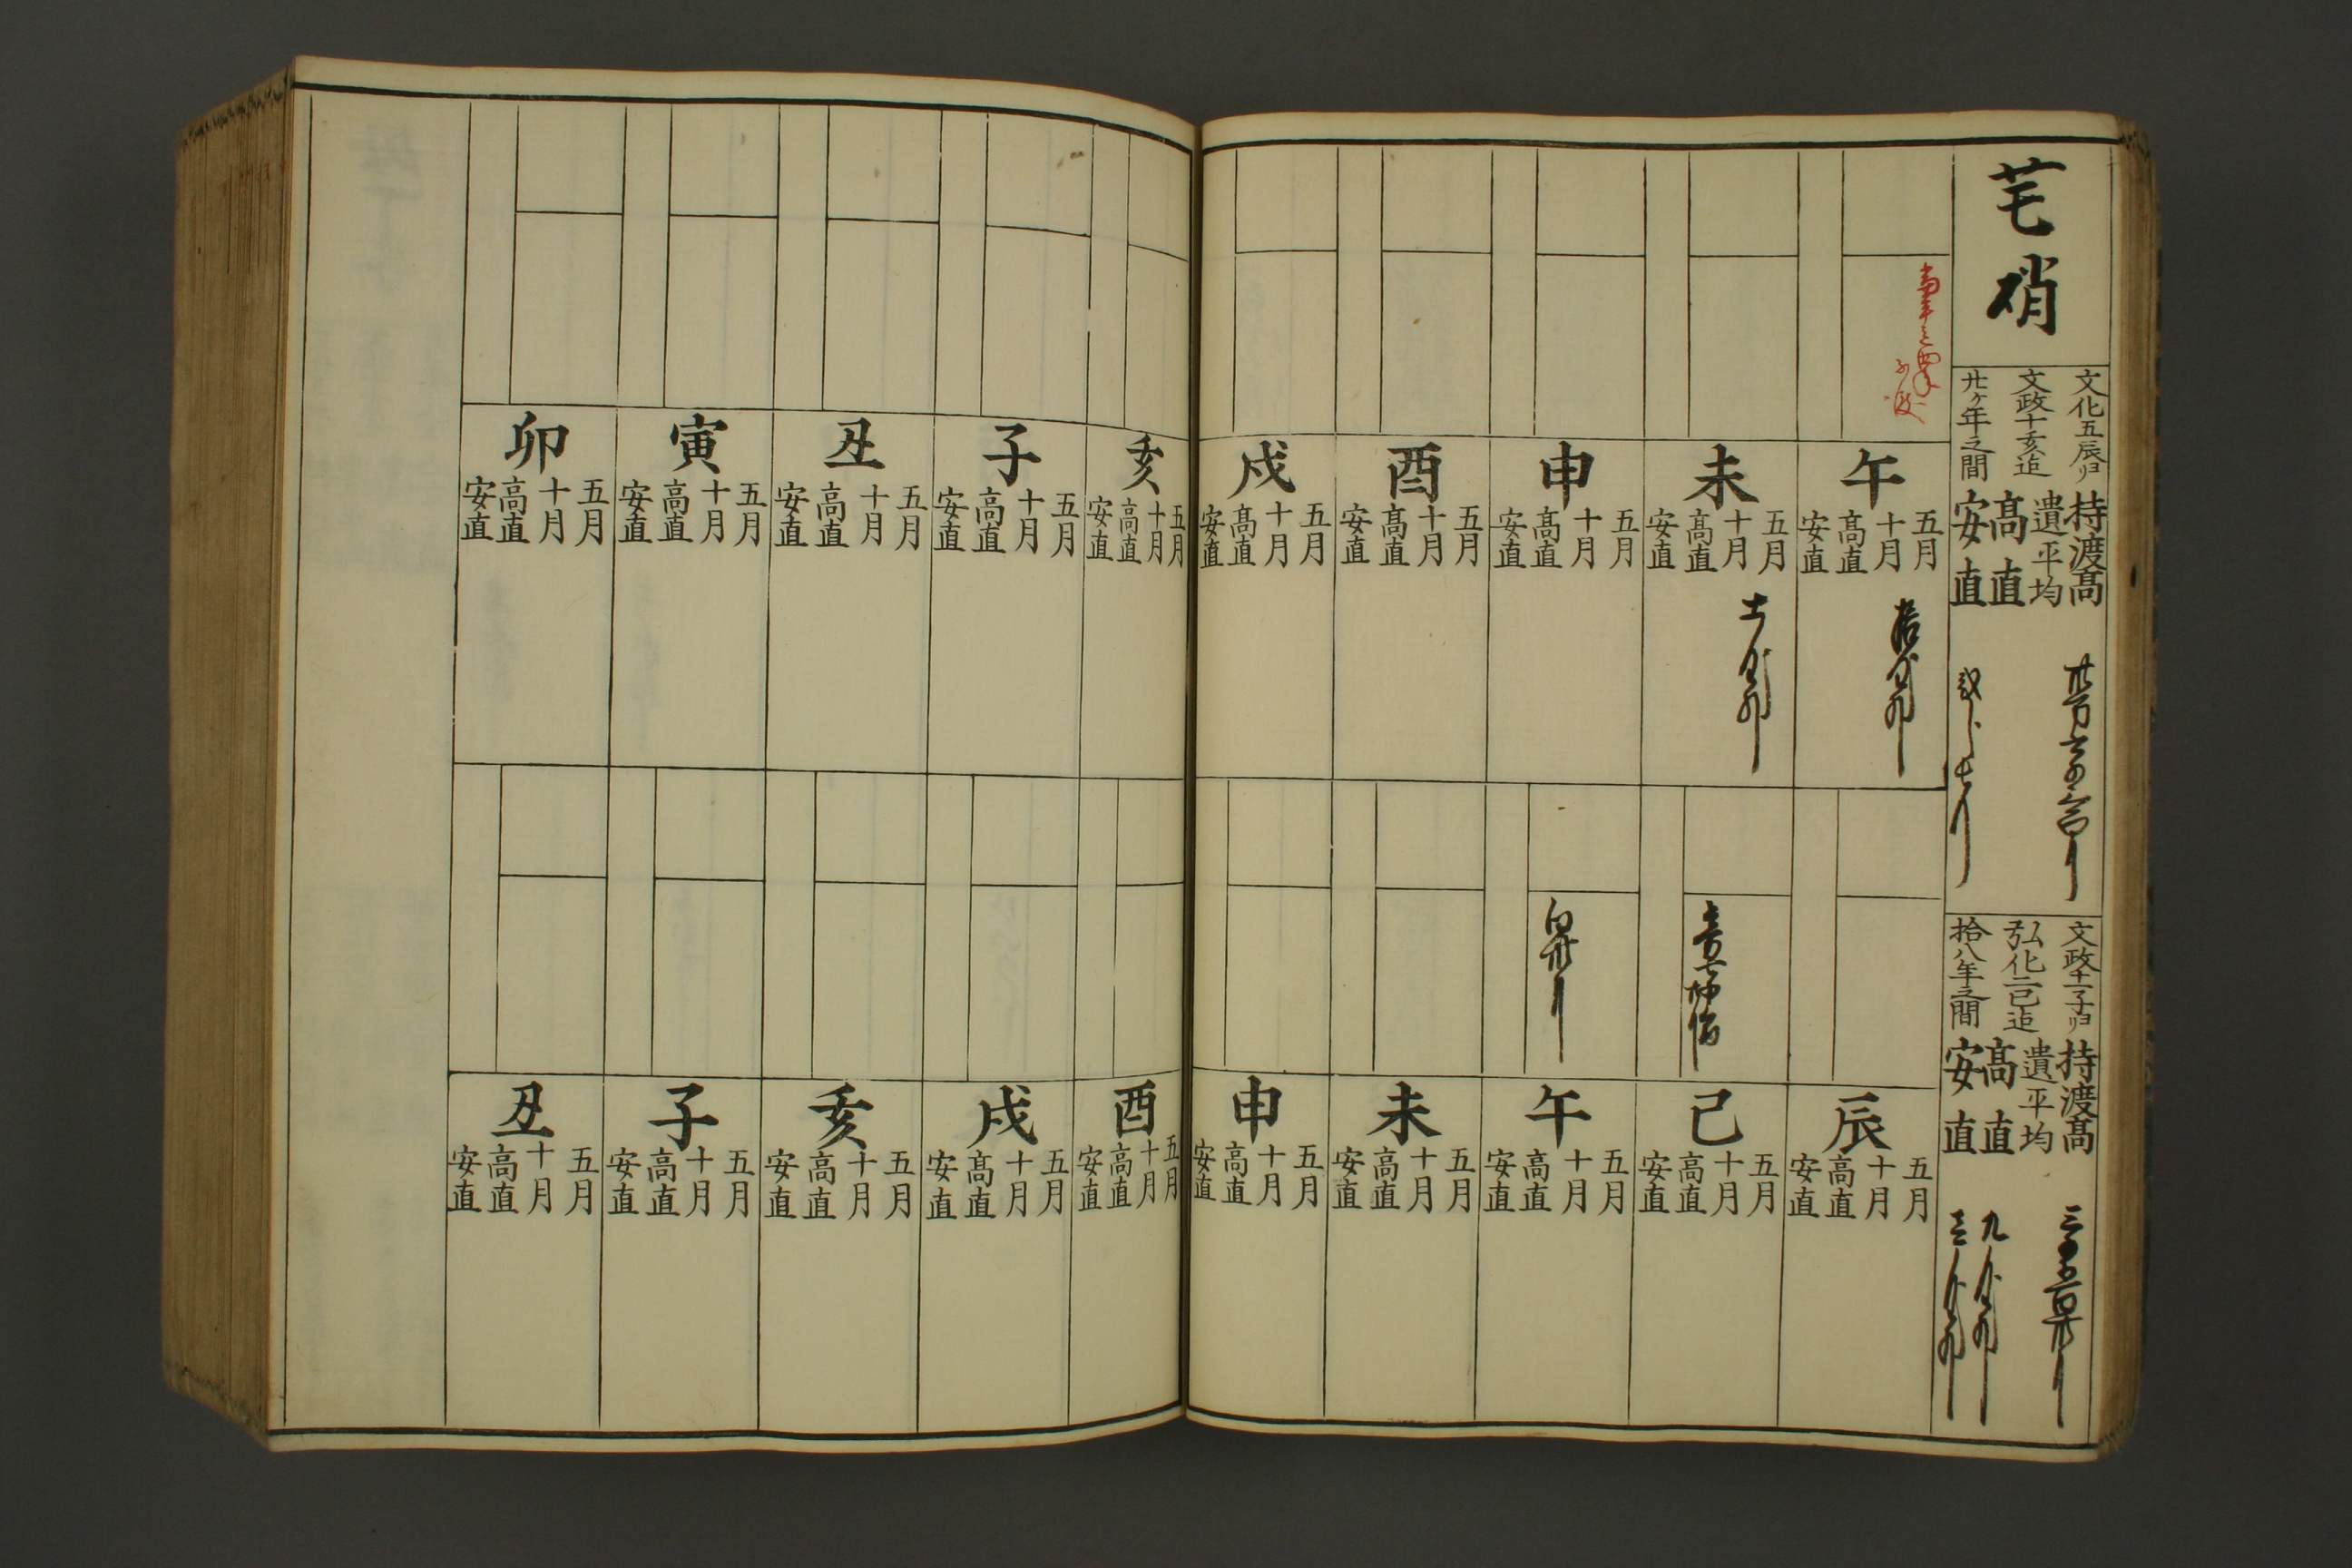 芒硝
文化五辰ゟ
文政十亥迠
廿ヶ年之間
持渡高
遣平均
高直
安直
文政十一子ゟ
弘化二巳迠
拾八年之間
持渡高
遣平均
高直
安直
午
五月
十月
高直
安直
未
五月
十月
高直
安直
申
五月
十月
高直
安直
酉
五月
十月
高直
安直
戌
五月
十月
高直
安直
亥
五月
十月
高直
安直
子
五月
十月
高直
安直
丑
五月
十月
高直
安直
寅
五月
十月
高直
安直
卯
五月
十月
高直
安直
辰
五月
十月
高直
安直
巳
五月
十月
高直
安直
午
五月
十月
高直
安直
未
五月
十月
高直
安直
申
五月
十月
高直
安直
酉
五月
十月
高直
安直
戌
五月
十月
高直
安直
亥
五月
十月
高直
安直
子
五月
十月
高直
安直
丑
五月
十月
高直
安直